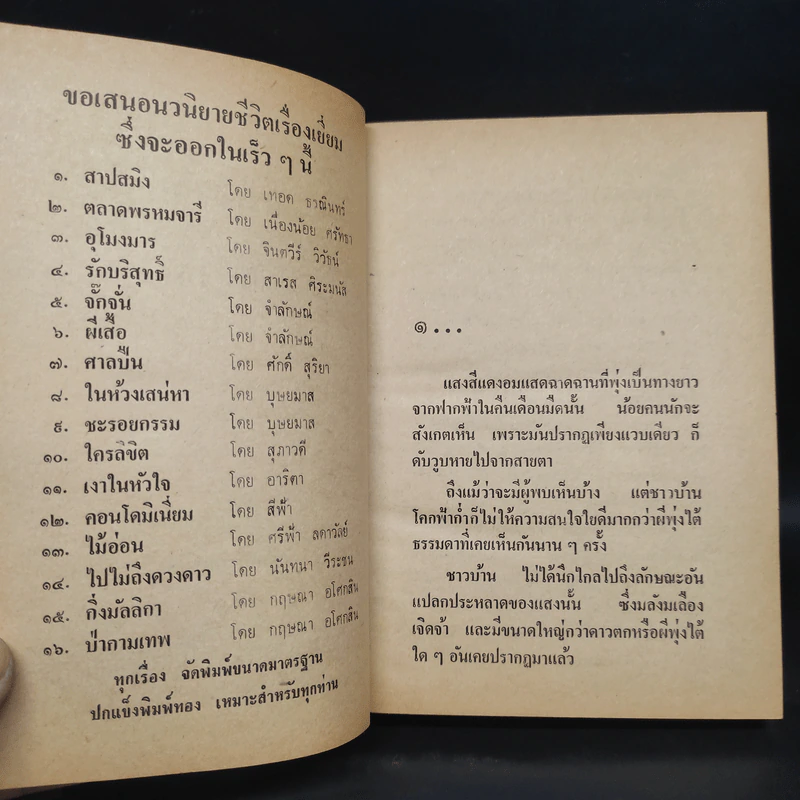 ขอเสนอนวนิยายชีวิตเรื่องเยี่ยม
ซึ่งจะออกในเร็ว ๆ นี้
๑. สาปสมิง โดย เทอด ธวณินทร์
๒. ตลาดพรหมจารี โดย เนื่องน้อย ศรัทธา
๓. อุโมงมาร โดย จินตวีร์ วิวัธน์
๔. รักบริสุทธิ์ โดย สาเรส ศิระมนัส
๕. จั๊กจั่น โดย จำลักษณ์
๖. ผีเสื้อ โดย จำลักษณ์
๗. ศาลปืน โดย ศักดิ์ สุริยา
๘. ในห้วงเสน่หา โดย บุษยมาส
๙. ชะรอยกรรม โดย บุษยมาส
๑๐. ใครลิขิต โดย สุภาวดี
๑๑. เงาในหัวใจ โดย อาริตา
๑๒. คอนโดมิเนี่ยม โดย สีฟ้า
๑๓. ไม้อ่อน โดย ศรีฟ้า ลดาวัลย์
๑๔. ไปไม่ถึงดวงดาว โดย นันทนา วีระชน
๑๕. กิ่งมัลลิกา โดย กฤษณา อโศกสิน
๑๖. ป่ากามเทพ โดย กฤษณา อโศกสิน
ทุกเรื่อง จัดพิมพ์ขนาดมาตรฐาน
ปกแข็งพิมพ์ทอง เหมาะสำหรับทุกท่าน
๑...
แสงสีแดงอมแสดฉาดฉานที่พุ่งเป็นทางยาว
จากฟากฟ้าในคืนเดือนมืดนั้น น้อยคนนักจะ
สังเกตเห็น เพราะมันปรากฏเพียงแวบเดียว ก็
ดับวูบหายไปจากสายตา
ถึงแม้ว่าจะมีผู้พบเห็นบ้าง แต่ชาวบ้าน
โคกฟ้าก่ำก็ไม่ให้ความสนใจใยดีมากกว่าผีพุ่งไต้
ธรรมดาที่เคยเห็นกันนาน ๆ ครั้ง
ชาวบ้าน ไม่ได้นึกไกลไปถึงลักษณะอัน
แปลกประหลาดของแสงนั้น ซึ่งมลังมเลือง
เจิดจ้า และมีขนาดใหญ่กว่าดาวตกหรือผีพุ่งไต้
ใด ๆ อันเคยปรากฏมาแล้ว